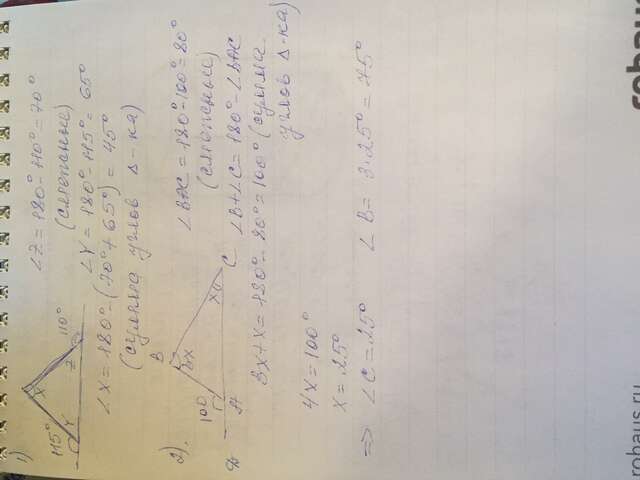 1)
115°
x
y
z
110°
∠Z = 180° - 110° = 70°
(смежные)
∠Y = 180° - 115° = 65°
∠X = 180° - (70° + 65°) = 45°
(сумма углов Δ-ка)
2).
B
3x
100
A
x
C
∠BAC = 180° - 100° = 80°
(смежные)
∠B + ∠C = 180° - ∠BAC
3x + x = 180° - 80° = 100° (сумма
углов Δ-ка)
4x = 100°
x = 25°
=> ∠C = 25° ∠B = 3·25° = 75°
rohaus
rohaus.ru